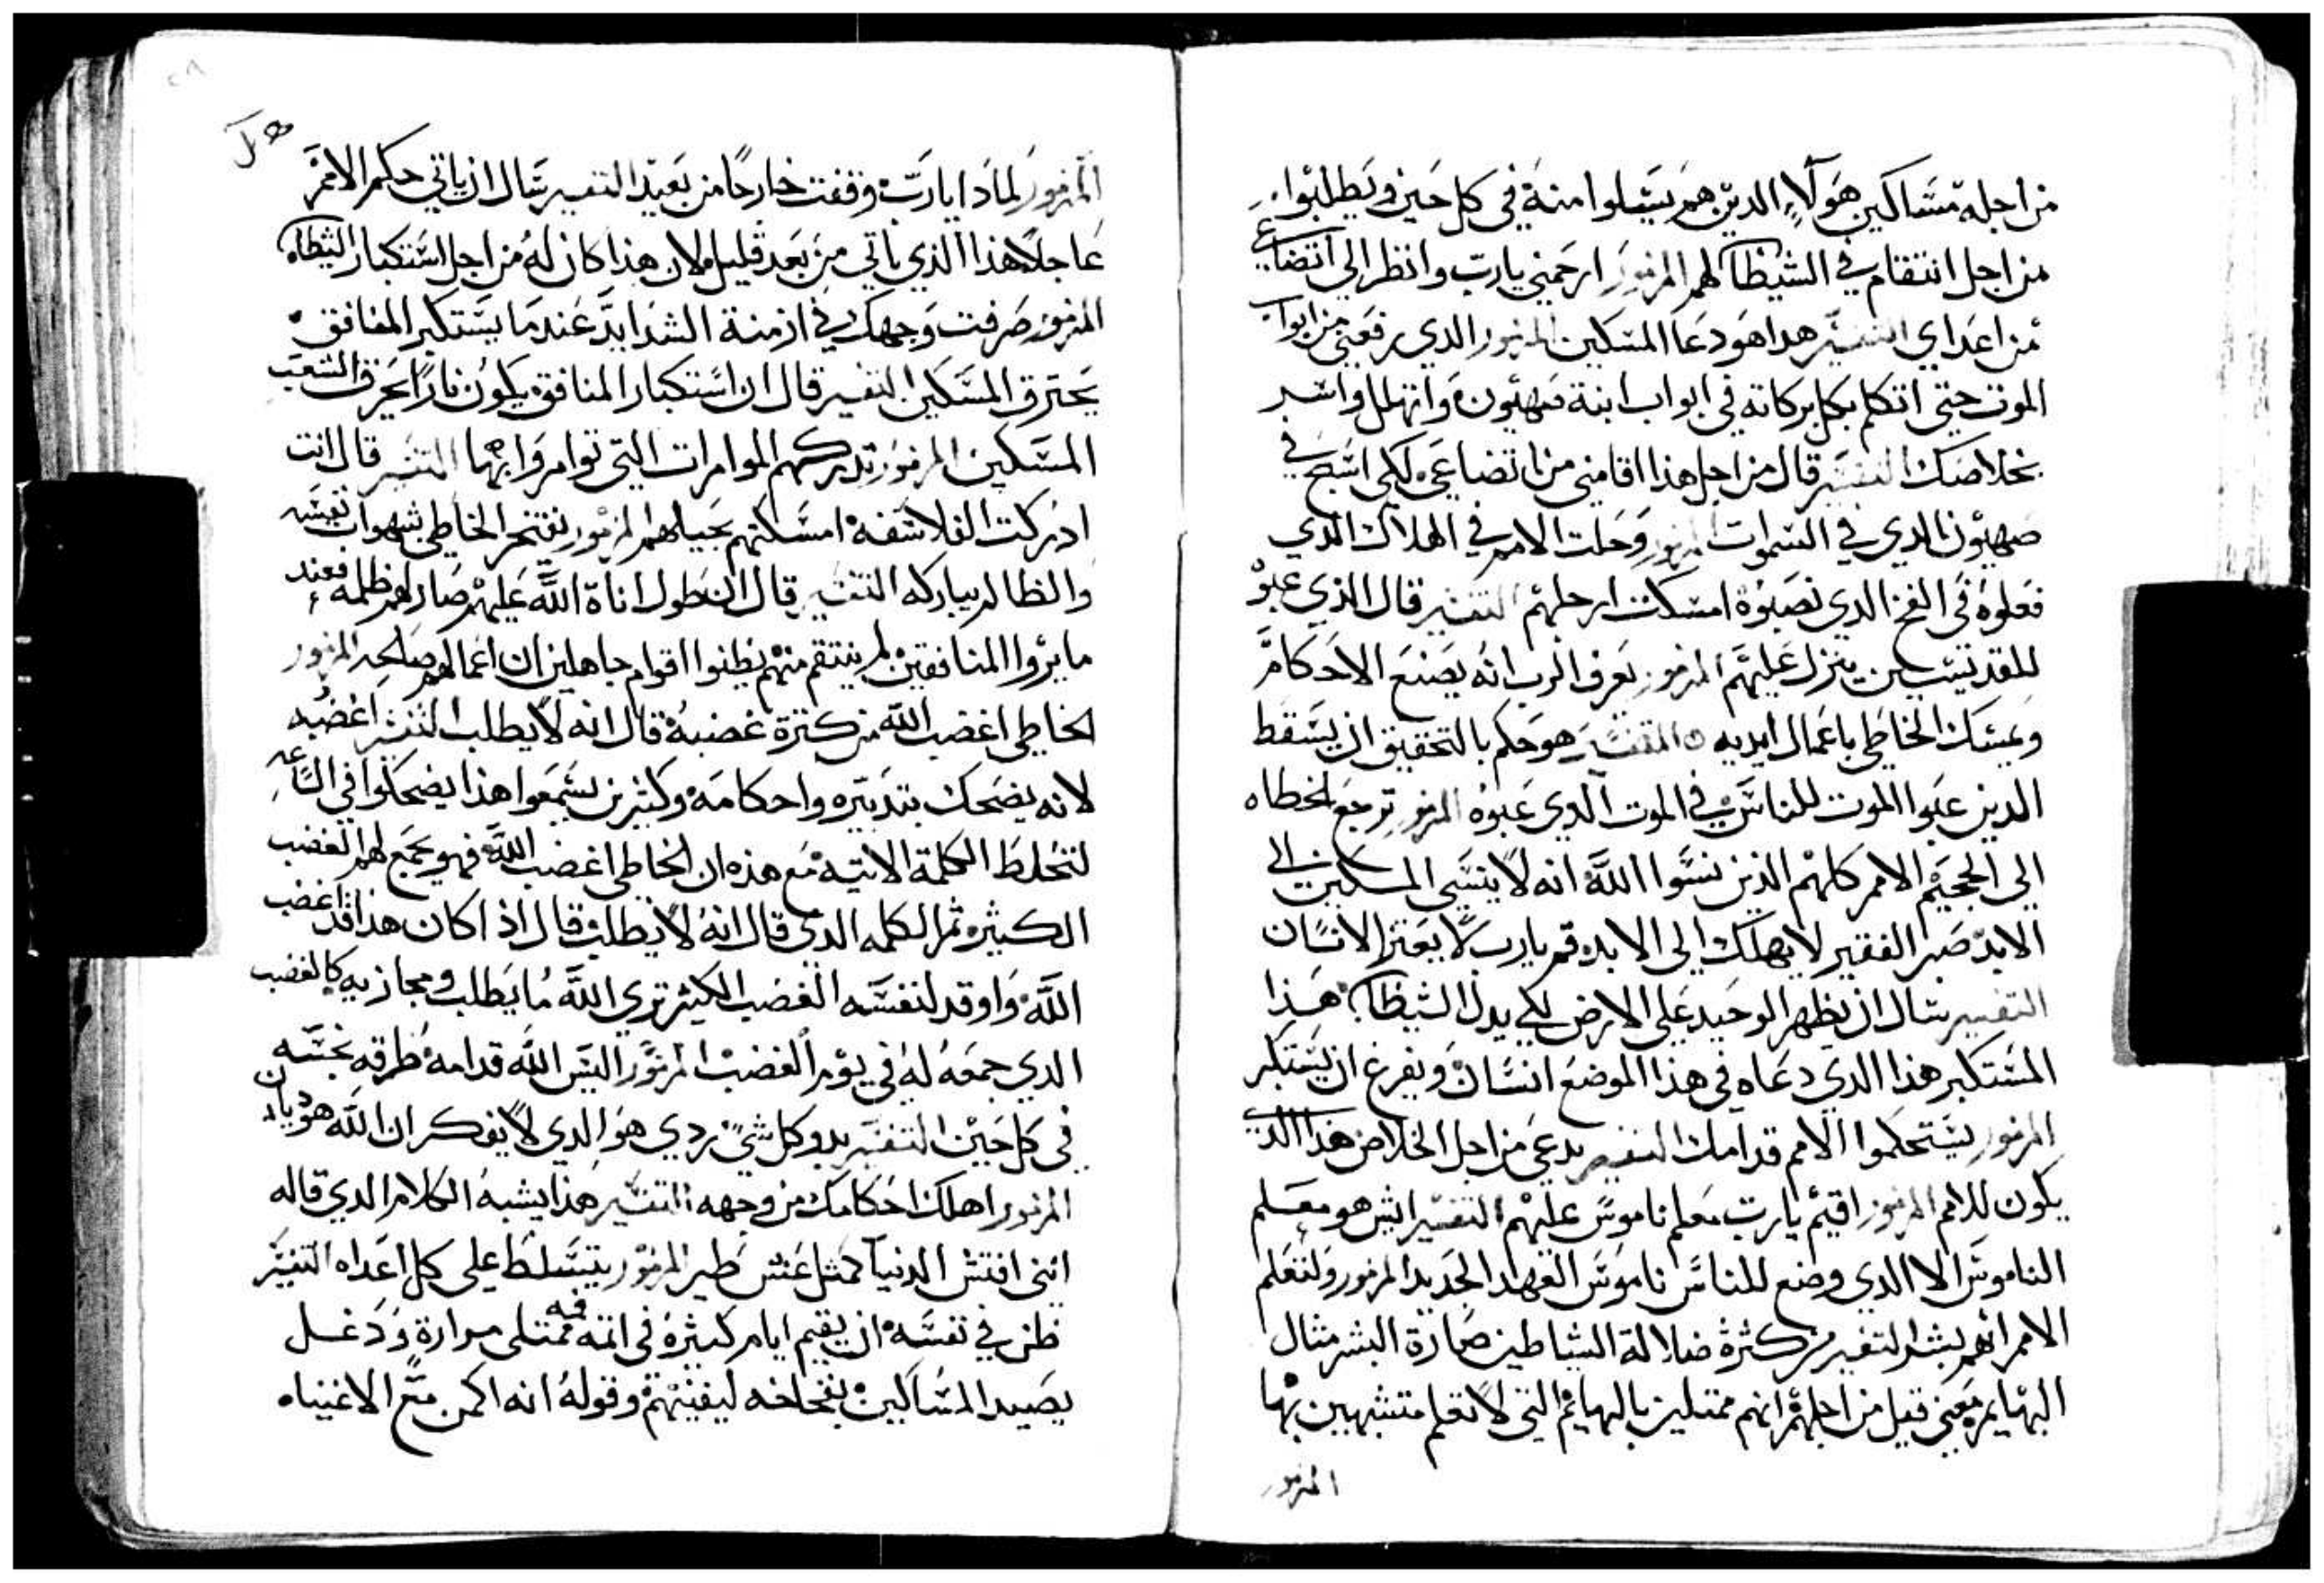 من اجله مساكين هولاء الدين هم يسيلوا منه في كل حين ويطلبوا
من اجل انتقام في الشيطا لهم المزمور ارحمني يارب وانظر الي اتضاعي
من اعداي التفسير هدا هو دعا المسكين المزمور الدي رفعني من ابواب
الموت حتى اتكلم بكل بركاته في ابواب ابنة صهيون واتهلل واسر
بخلاصك التفسير قال من اجل هذا اقامني من اتضاعي لكي اسبح في
صهيون الدي في السموات المزمور وحلت الامم في الهلاك الذي
فعلوه في الفخ الدي نصبوه امسكت ارجلهم التفسير قال الذي عبوه
للقديسين ينزل عليهم المزمور يعرف الرب انه يصنع الاحكام
ويمسك الخاطي باعمال ايديه التفسير هو حكم بالتحقيق ان يسقط
الدين عبوا الموت للناس في الموت الدي عبوه المزمور ترجع الخطاه
الي الجحيم الامم كلهم الذين نسوا الله انه لا ينسى المسكين الي
الابد صبر الفقير لا يهلك الى الابد قم يارب لا يعتز الانسان
التفسير سال ان يظهر الوحيد على الارض لكي يدل الشيطا هذا
المستكبر هذا الدي دعاه في هذا الموضع انسان ويفرغ ان يستكبر
المزمور يستحكموا الامم قدامك التفسير يدعى من اجل الخلاص هذا الدي
يكون للامم المزمور اقيم يارب معلم ناموس عليهم التفسير ايش هو معلم
الناموس الا الدي وضع للناس ناموس العهد الجديد المزمور ولتعلم
الامم انهم بشر التفسير من كثرة ضلالة الشياطين صارة البشر مثال
البهايم معنى قيل من اجلهم انهم ممتلين بالبهايم التي لا تعلم متشبهين بها
المزمور
المزمور لمادا يارب وقفت خارجا من بعيد التفسير سال ان ياتي حكم الامم
عاجلا هذا الذي ياتي من بعد قليل لان هذا كان له من اجل استكبار الشيطا
المزمور صرفت وجهك في ازمنة الشدايد عندما يستكبر المنافق
يحترق المسكين التفسير قال ان استكبار المنافق يكون نارا يحرق الشعب
المسكين المزمور تدركهم الموامرات التي توامروا بها التفسير قال انت
ادركت الفلاسفه امسكتهم بحيلهم المزمور يفتخر الخاطي بشهوات نفسه
والظالم يباركه التفسير قال ان طول اناة الله عليهم صار لهم ظلمه فعند
ما يروا المنافقين لم ينتقم منهم يظنوا اقوام جاهلين ان اعمالهم صالحه المزمور
الخاطي اغضب الله من كثرة غضبه قال انه لا يطلب التفسير اغضبه
لانه يضحك بتدبيره واحكامه وكثيرين يسمعوا هذا يضحكوا في الساعه
لتخلط الكلمة الاتيه مع هذه ان الخاطي اغضب الله فهو يجمع لهم الغضب
الكثيره ثم الكلمه الدي قال انه لا يطلب قال اذا كان هذا قد اغضب
الله واوقد لنفسه الغضب الكثير تري الله ما يطلب ومجازيه كالغضب
الدي جمعه له في يوم الغضب المزمور اليس الله قدامه طرقه نجسه
في كل حين التفسير بدو كل شي ردي هو الدي لا يفكر ان الله هو ديان
المزمور اهلك احكامك من وجهه التفسير هذا يشبه الكلام الدي قاله
انني افتش الدنيا كمثل عش طير المزمور يتسلط على كل اعداه التفسير
ظن في نفسه ان يقيم ايام كثيره في اتمه فمه ممتلي مرارة ودغل
يصيد المساكين بفخاخه ليفنيهم وقوله انه اكمن مع الاغنياه